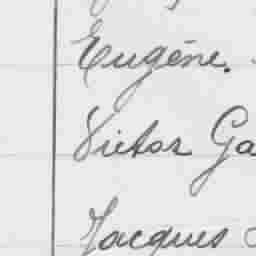 Eugène.
Victor Ga
Jacques